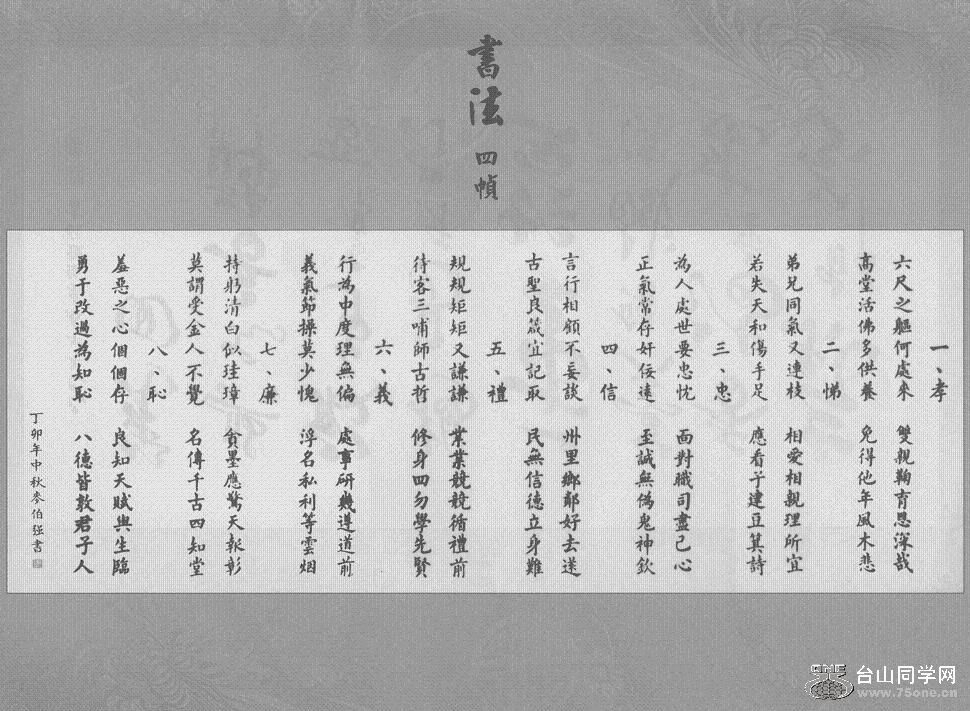 書法
四幀
一、孝
六尺之軀何處來 雙親鞠育恩深哉
高堂活佛多供養 免得他年風木悲
二、悌
弟兄同氣又連枝 相愛相親理所宜
若失天和傷手足 應看子建豆箕詩
三、忠
為人處世要忠忱 面對職司盡己心
正氣常存奸佞遠 至誠無偽鬼神欽
四、信
言行相顧不妄談 州里鄉鄰好去送
古聖良箴宜記取 民無信德立身難
五、禮
規規矩矩又謙謙 業業兢兢循禮前
待客三哺師古哲 修身四勿學先賢
六、義
行為中度理無偏 處事研幾遵道前
義氣節操莫少愧 浮名私利等雲烟
七、廉
持躬清白似珪璋 貪墨應驚天報彰
莫謂受金人不覺 名傳千古四知堂
八、恥
羞惡之心個個存 良知天賦與生臨
勇于改過為知恥 八德皆敦君子人
丁卯年中秋麥伯强書
台山同学网
www.75one.cn